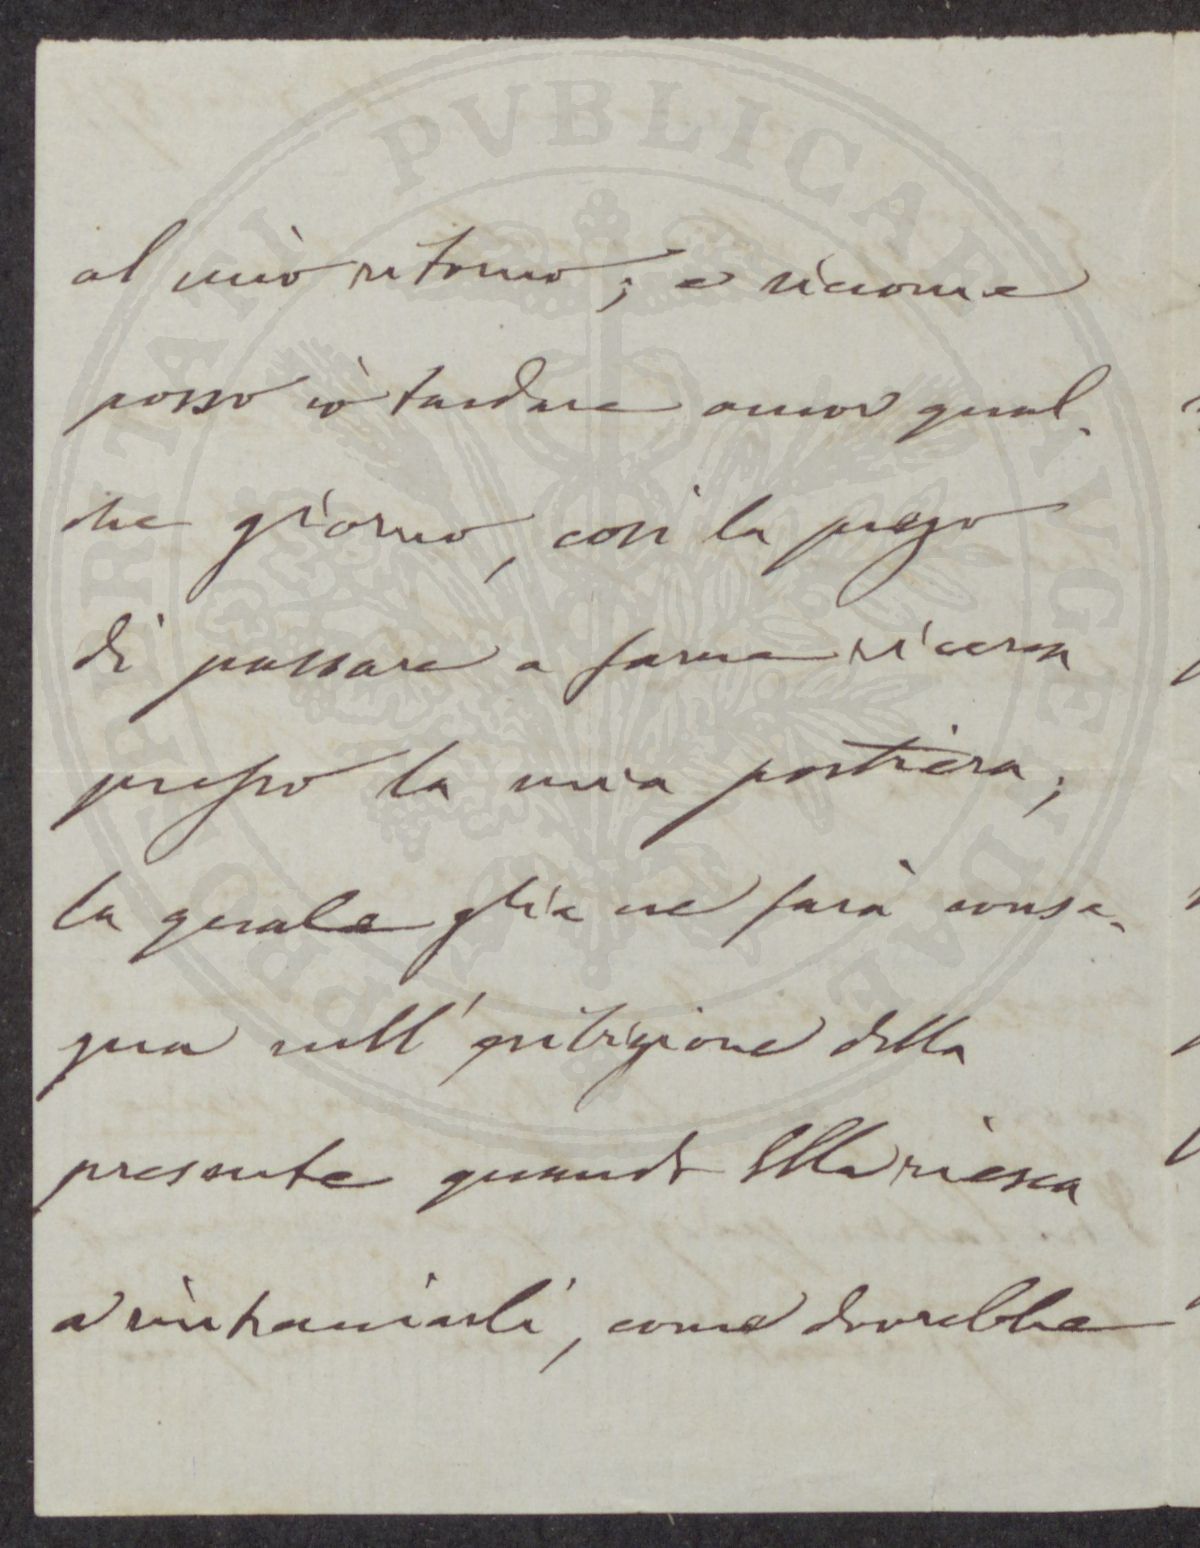 PROSPERITATI PVBLICAE AVGENDAE
al mio ritorno; e siccome
posso io tardare ancor qual-
che giorno, così la prego
di passare a farne ricerca
presso la mia portiera;
la quale glie ne farà conse-
gna sull'esibizione della
presente quando Ella riesca
a rintracciarli, come dovrebbe